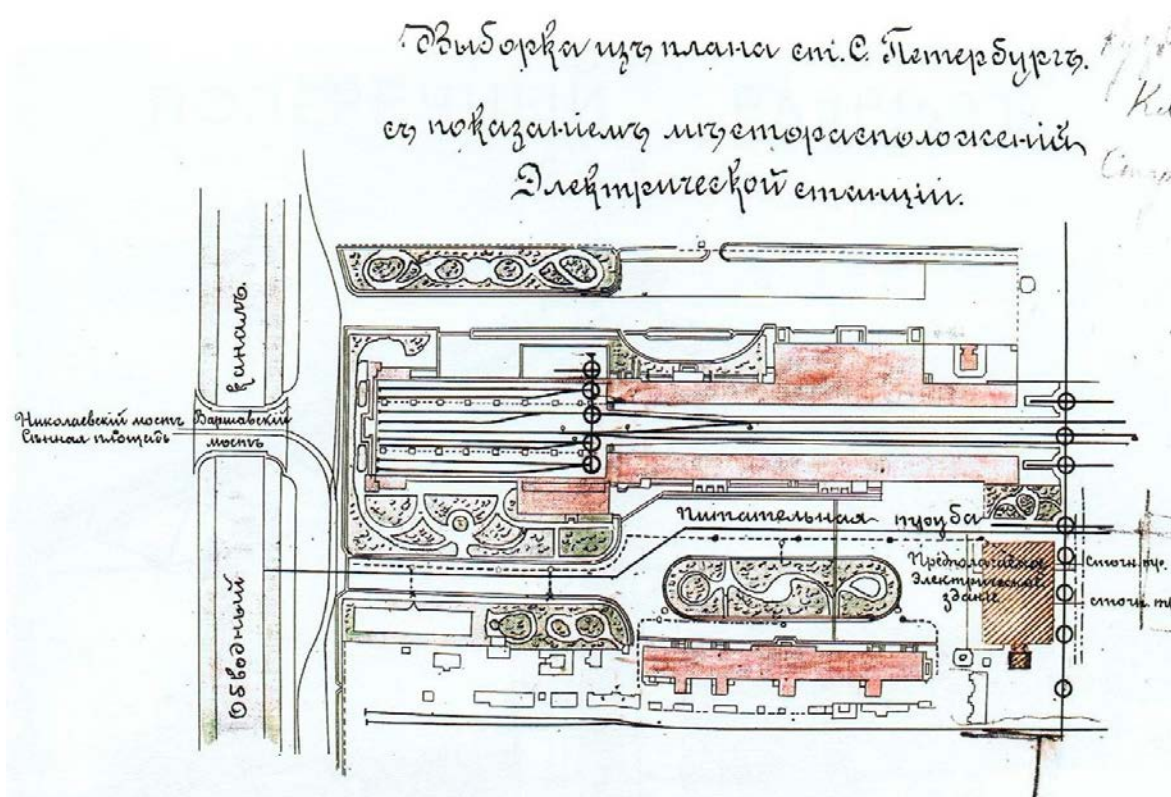 Выборка изъ плана ст. С. Петербургъ.
съ показаніемъ мѣсторасположеній
Электрической станціи.
каналъ.
Николаевскій мостъ
Сѣнная площадь
Варшавскій
мостъ
Питательная труба
Предполагаемое
Электрическое
зданіе
Сточн. тр.
сточн. тр.
Обводный